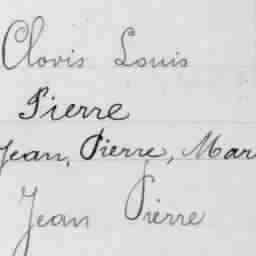 Clovis Louis
Pierre
Jean, Pierre, Mar
Jean Pierre